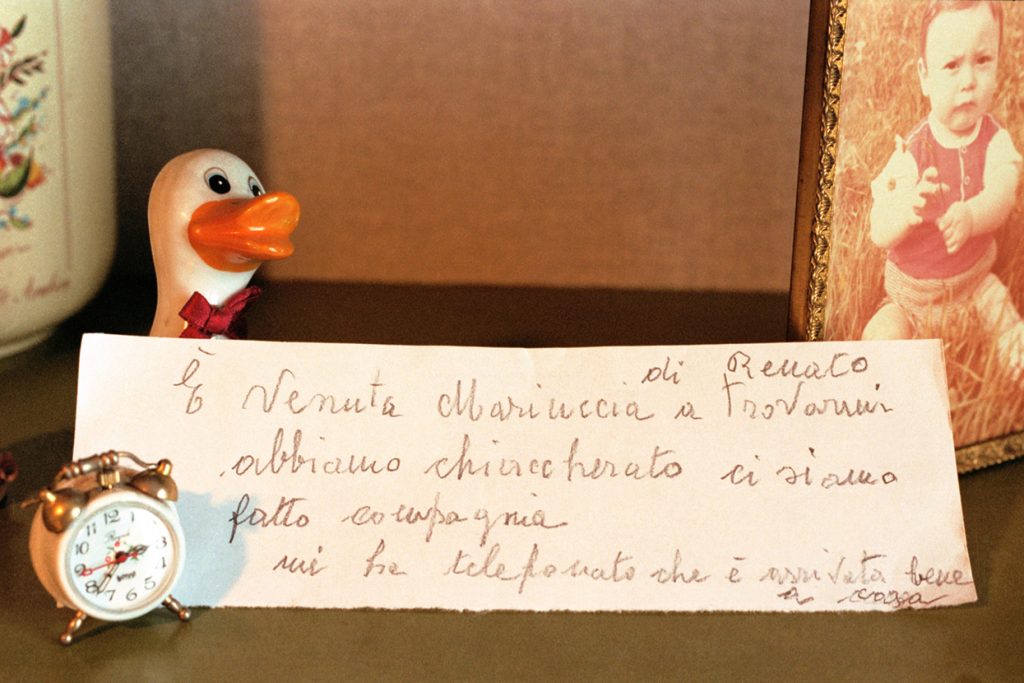 È Venuta Mariuccia di Renato a TroVarmi
abbiamo chiaccherato ci siamo
fatto compagnia
mi ha telefonato che è arriVata bene
a casa
12
1
2
3
4
5
6
7
8
9
10
11